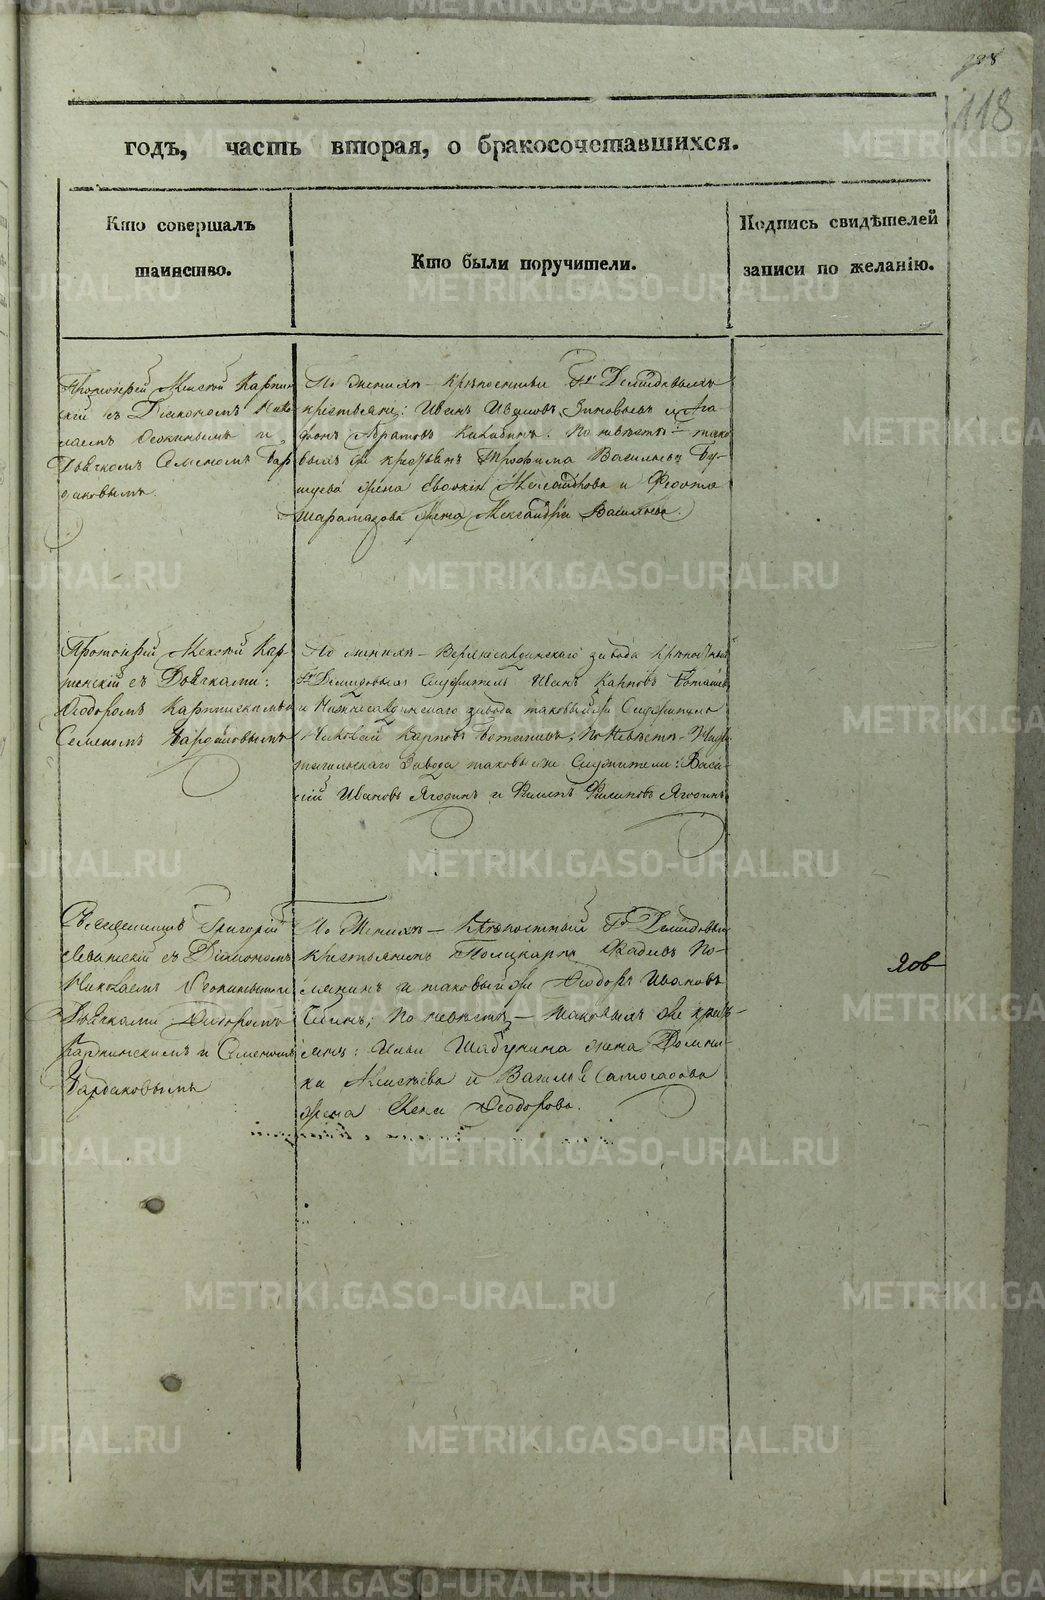 118
годъ, часть вторая, о бракосочетавшихся.
Кто совершалъ
таинство.
Кто были поручители.
Подпись свидѣтелей
записи по желанію.
Протоіерей Алексѣй Карпин
скій съ Діакономъ Нико
лаемъ и
Дьячкомъ Семеномъ Бар
даковымъ.
По женихѣ – крѣпостные Гг. Демидовыхъ
крестьяне: Иванъ Ивановъ Зиновьевъ и Ага
фонъ По невѣстѣ – тако
выхъ же Трофима Васильева Бу-
жена Евдокія и Федота
жена Александра Васильева.
Протоіерей Алексѣй Кар-
пинскій съ Дьячками:
Ѳеодоромъ Карпинскимъ и
Семеномъ Бардаковымъ
По женихѣ – Верхнесалдинскаго завода крѣпостный
Гг. Демидовыхъ Служитель Иванъ Карповъ
и Нижнесалдинскаго завода таковый же Служитель
Николай Карповъ По невѣстѣ – Нижне
тагильскаго завода таковые же Служители: Васи-
лій Ивановъ Ягодинъ и Филиповъ Ягодинъ
Священникъ Григорій
съ Діакономъ
Николаемъ и
Дьячками Ѳеодоромъ
Карпинскимъ и Семеномъ
Бардаковымъ
По женихѣ – Крѣпостный Гг. Демидовыхъ
крестьянинъ Поликарпъ По-
и таковый же Ѳеодоръ Ивановъ
По невѣстѣ – таковыхъ же крестъ-
янъ: Ильи Шабунина жена Домни-
ка Алексѣева и Василья Самосадова
жена Ѳеодорова.
METRIKI.GASO-URAL.RU